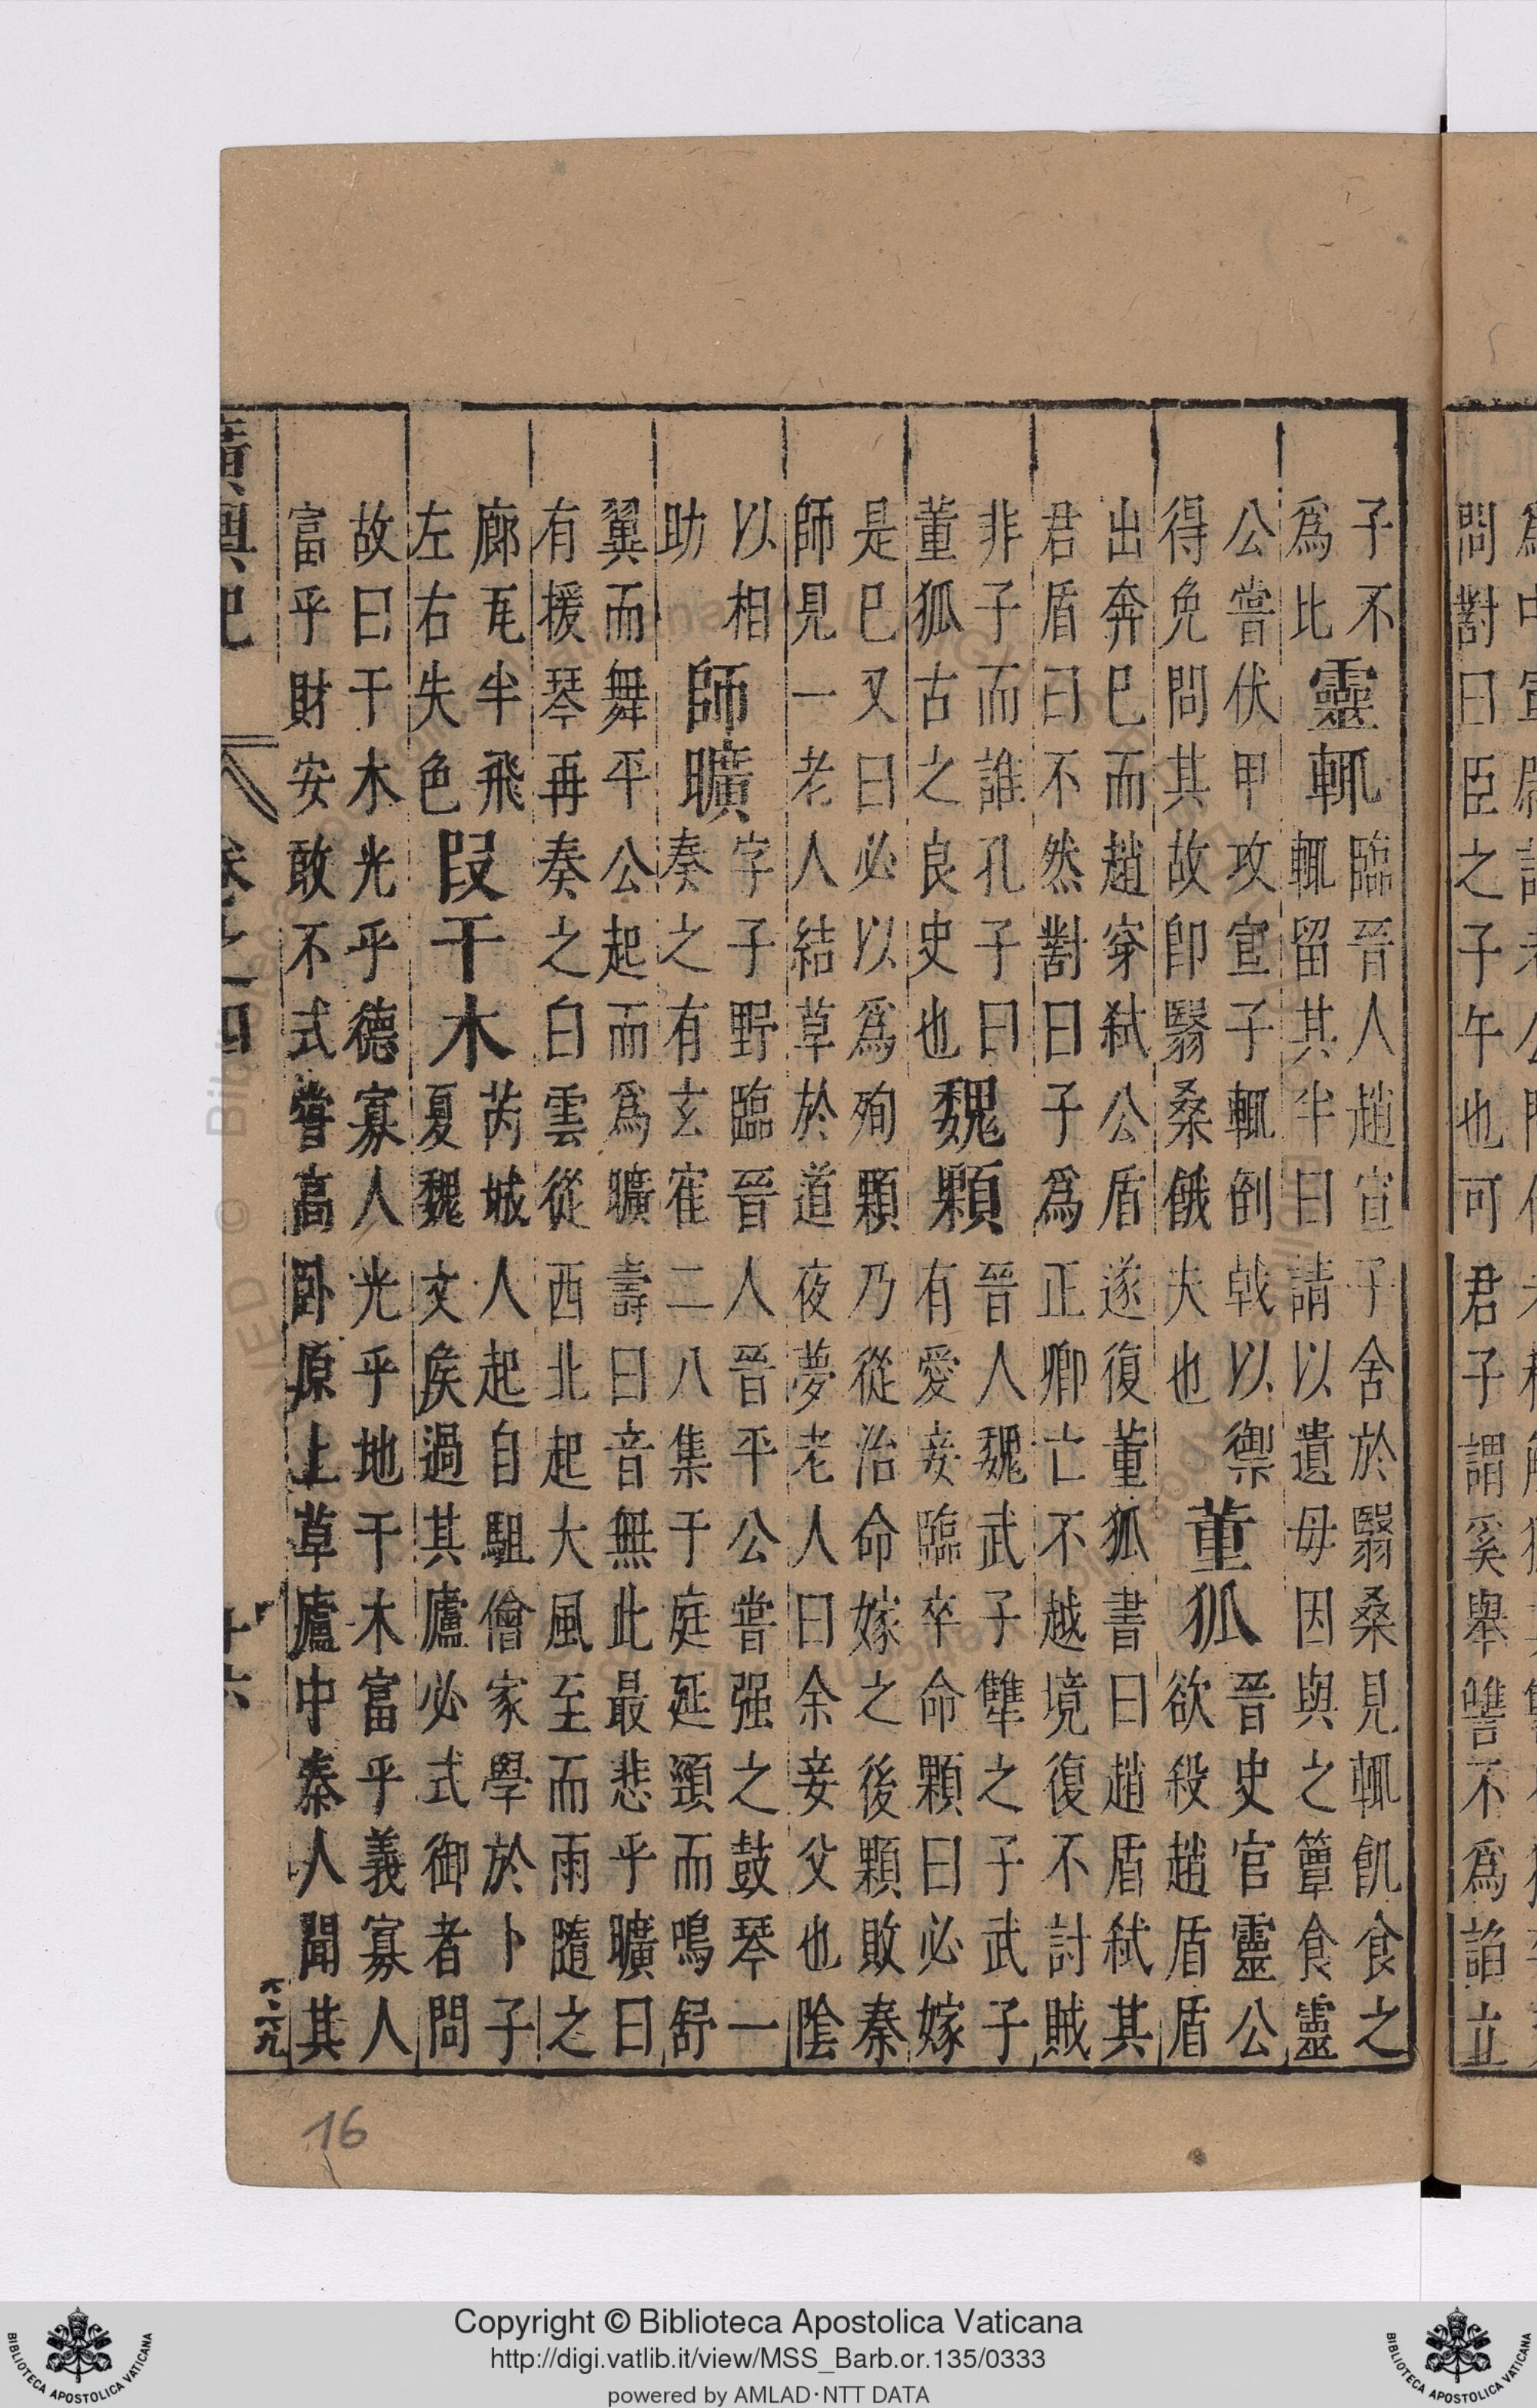 問對曰臣之子午也可君子謂奚舉讐不為諂立
子不
為比
靈輒
臨晉人趙宣子舍於翳桑見輒飢食之
輒留其半曰請以遺毋因與之簞食靈
公嘗伏甲攻宣子輒倒戟以禦
得免問其故卽翳桑餓夫也
董狐
晉史官靈公
欲殺趙盾盾
出奔巳而趙穿弑公盾遂復董狐書曰趙盾弑其
君盾曰不然對曰子爲正卿亡不越境復不討賊
非子而誰孔子曰
董狐古之良史也
魏顆
晉人魏武子犨之子武子
有愛妾臨卒命顆曰必嫁
是巳又曰必以爲殉顆乃從治命嫁之後顆敗秦
師見一老人結草於道夜夢老人曰余妾父也陰
以相
助
師曠
字子野臨晉人晉平公嘗强之鼓琴一
奏之有玄寉二八集于庭延頸而鳴舒
翼而舞平公起而爲曠壽曰音無此最悲乎曠曰
有援琴再奏之白雲從西北起大風至而雨隨之
廊瓦半飛
左右失色
段干木
芮城人起自駔儈家學於卜子
夏魏文矦過其廬必式御者問
故曰干木光乎德寡人光乎地干木富乎義寡人
富乎財安敢不式嘗高卧原上草廬中秦人聞其
廣輿記 卷之四 十六
16
Copyright © Biblioteca Apostolica Vaticana
http://digi.vatlib.it/view/MSS_Barb.or.135/0333
powered by AMLAD·NTT DATA
BIBLIOTECA APOSTOLICA VATICANA
BIBLIOTECA APOSTOLICA VATICANA